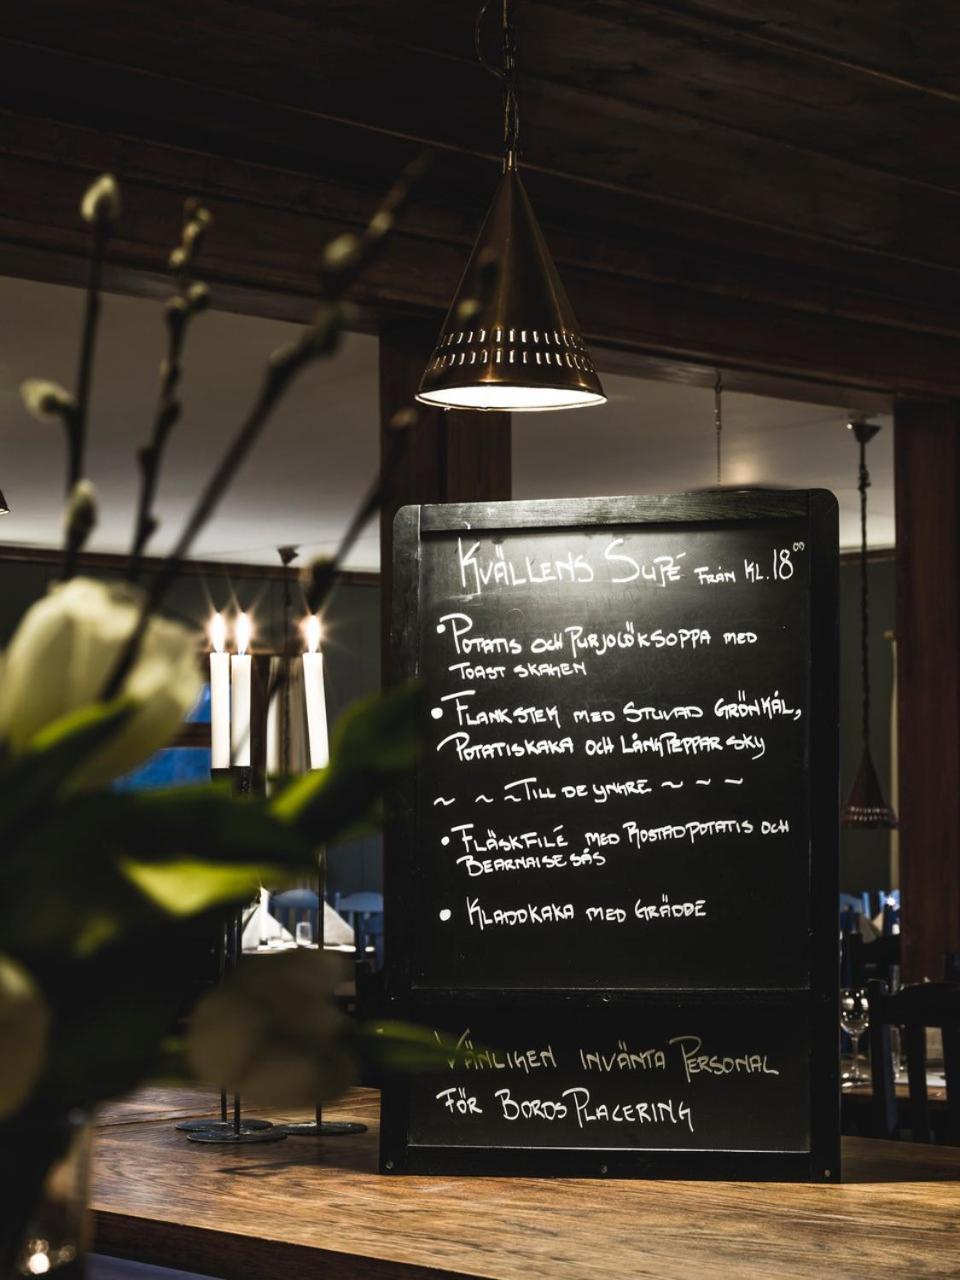 Kvällens Supé från kl. 18⁰⁰
• Potatis och Purjolöksoppa med
Toast skagen
• Flankstek med Stuvad Grönkål,
Potatiskaka och Långpeppar sky
~ ~ ~ Till de yngre ~ ~ ~
• Fläskfilé med Rostadpotatis och
Bearnaisesås
• Kladdkaka med Grädde
Vänligen invänta Personal
för BordsPlacering